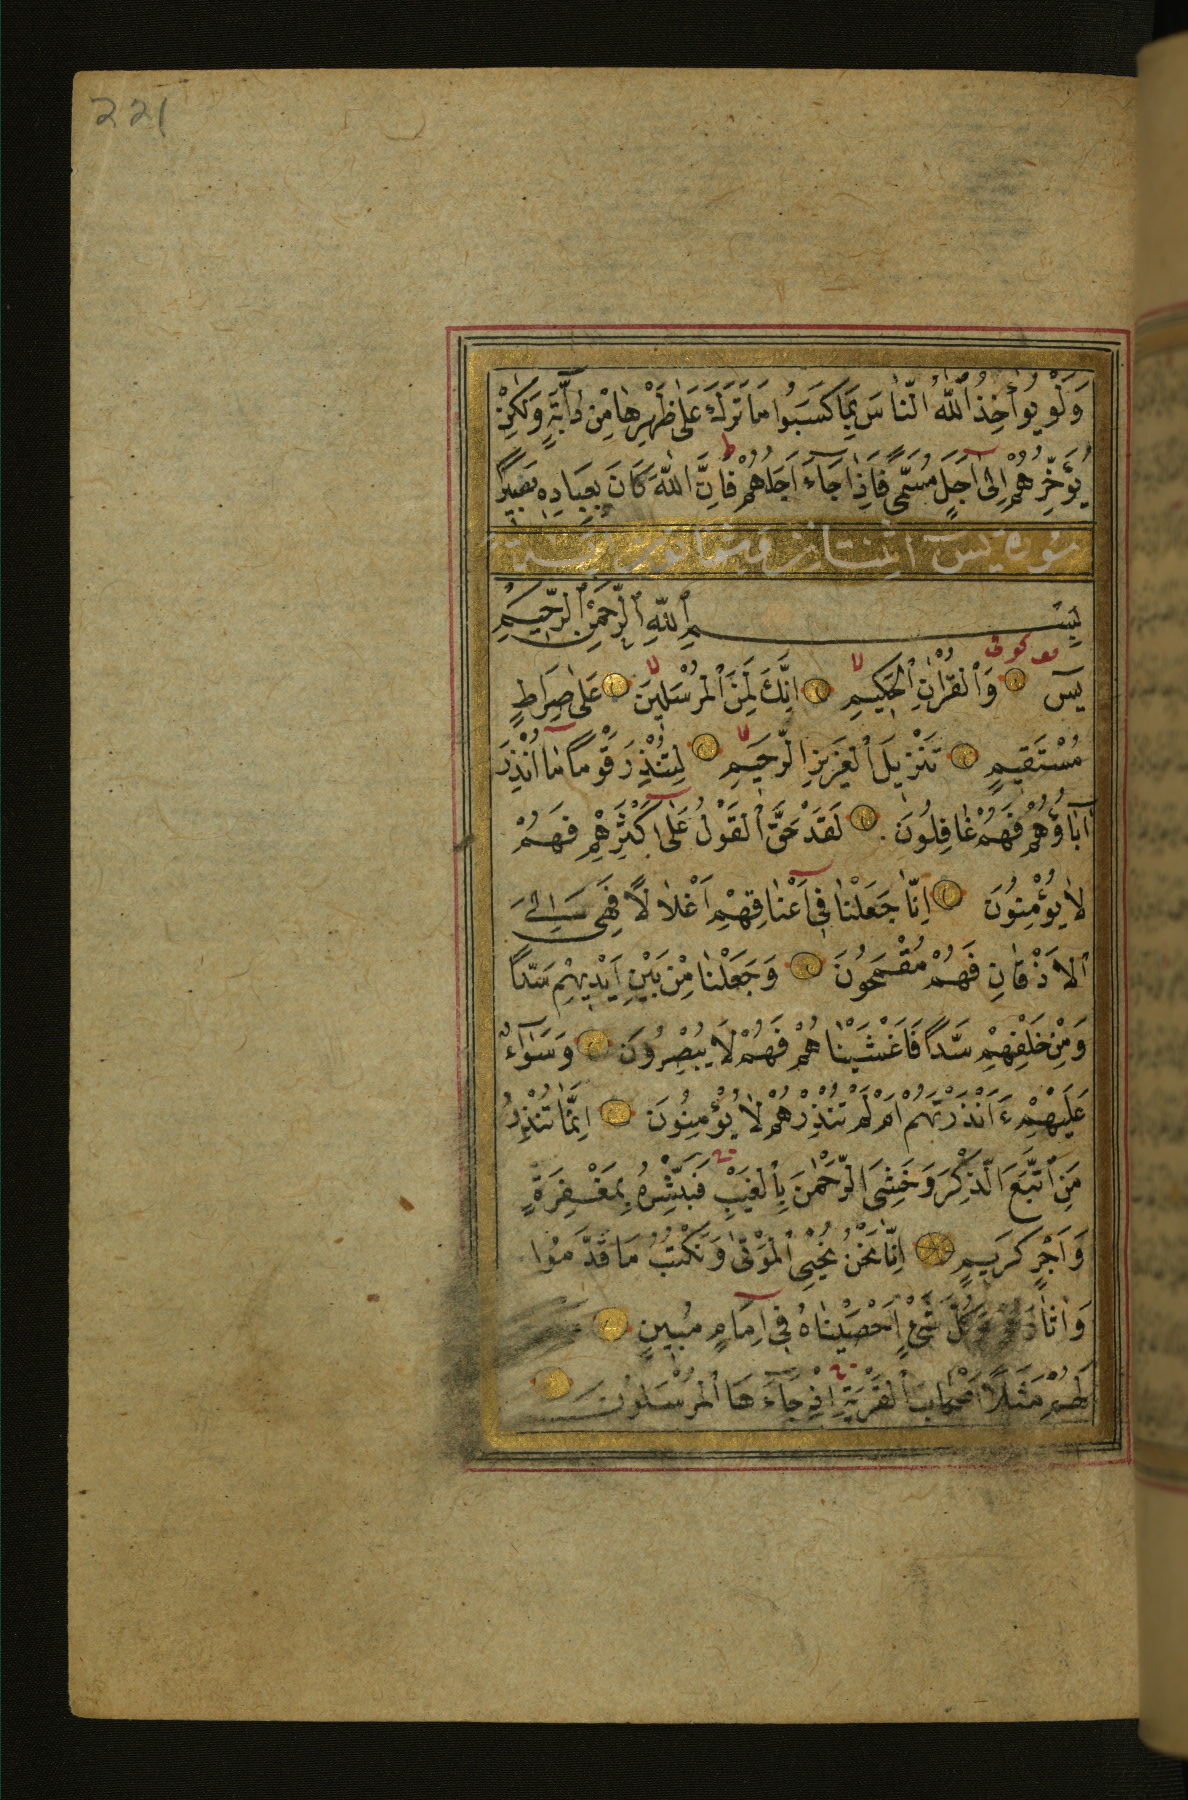 221
وَلَوْ يُؤَاخِذُ ٱللّٰهُ ٱلنَّاسَ بِمَا كَسَبُوا مَا تَرَكَ عَلٰى ظَهْرِهَا مِنْ دَٓابَّةٍ وَلٰكِنْ
يُؤَخِّرُهُمْ اِلٰٓى اَجَلٍ مُسَمًّى فَاِذَا جَٓاءَ اَجَلُهُمْ فَاِنَّ ٱللّٰهَ كَانَ بِعِبَادِهٖ بَصِيرًا
سورة يس اثنتان وثمانون
بِسْمِ ٱللّٰهِ ٱلرَّحْمٰنِ ٱلرَّحِيمِ
كوفى
يٰسٓ وَٱلْقُرْاٰنِ ٱلْحَكِيمِ اِنَّكَ لَمِنَ ٱلْمُرْسَلِينَ عَلٰى صِرَاطٍ
مُسْتَقِيمٍ تَنْزِيلَ ٱلْعَزِيزِ ٱلرَّحِيمِ لِتُنْذِرَ قَوْمًا مَٓا اُنْذِرَ
اٰبَٓاؤُهُمْ فَهُمْ غَافِلُونَ لَقَدْ حَقَّ ٱلْقَوْلُ عَلٰٓى اَكْثَرِهِمْ فَهُمْ
لَا يُؤْمِنُونَ اِنَّا جَعَلْنَا فِٓى اَعْنَاقِهِمْ اَغْلَالًا فَهِىَ اِلَى
ٱلْاَذْقَانِ فَهُمْ مُقْمَحُونَ وَجَعَلْنَا مِنْ بَيْنِ اَيْدِيهِمْ سَدًّا
وَمِنْ خَلْفِهِمْ سَدًّا فَاَغْشَيْنَاهُمْ فَهُمْ لَا يُبْصِرُونَ وَسَوَٓاءٌ
عَلَيْهِمْ ءَاَنْذَرْتَهُمْ اَمْ لَمْ تُنْذِرْهُمْ لَا يُؤْمِنُونَ اِنَّمَا تُنْذِرُ
مَنِ ٱتَّبَعَ ٱلذِّكْرَ وَخَشِىَ ٱلرَّحْمٰنَ بِٱلْغَيْبِ فَبَشِّرْهُ بِمَغْفِرَةٍ
وَاَجْرٍ كَرِيمٍ اِنَّا نَحْنُ نُحْيِى ٱلْمَوْتٰى وَنَكْتُبُ مَا قَدَّمُوا
وَاٰثَارَهُمْ وَكُلَّ شَىْءٍ اَحْصَيْنَاهُ فِٓى اِمَامٍ مُبِينٍ
لَهُمْ مَثَلًا اَصْحَابَ ٱلْقَرْيَةِ اِذْ جَٓاءَهَا ٱلْمُرْسَلُونَ